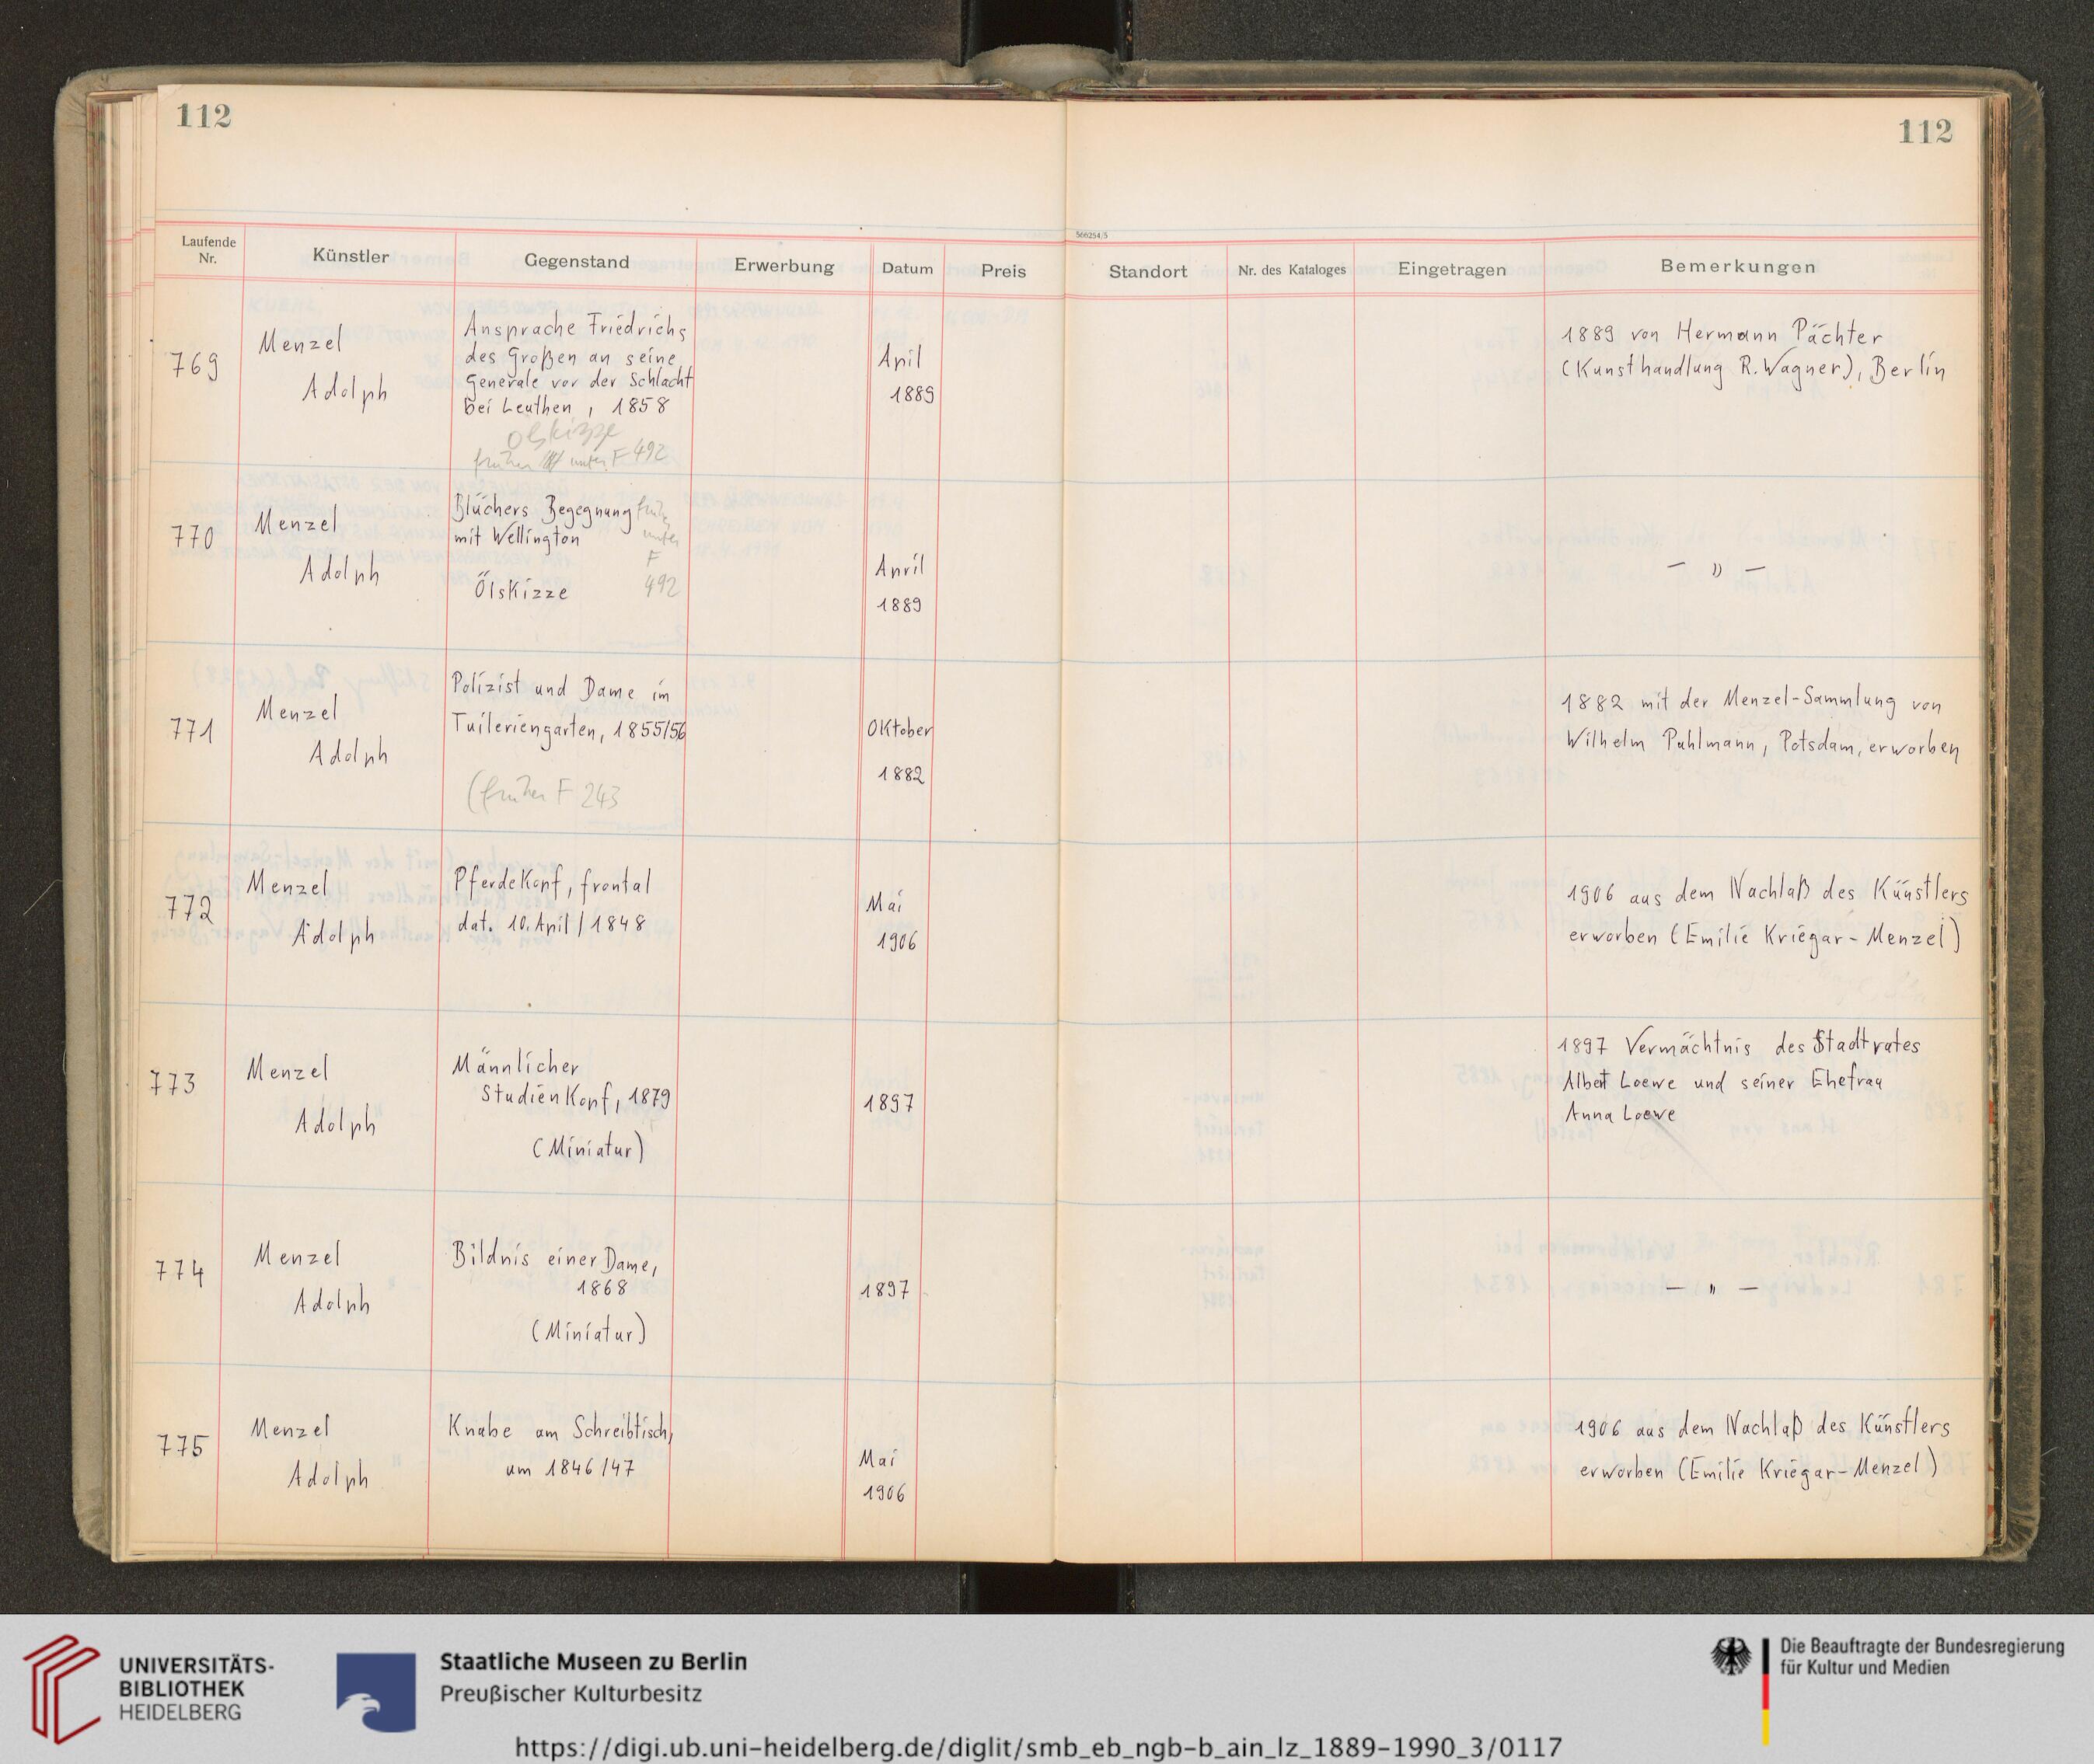 112
112
566254/5
Laufende Nr.
Künstler
Gegenstand
Erwerbung
Datum
Preis
Standort
Nr. des Kataloges
Eingetragen
Bemerkungen
769
Menzel
Adolph
Ansprache Friedrichs
des Großen an seine
Generale vor der Schlacht
bei Leuthen, 1858
Ölskizze
früher unter F 492
April
1889
1889 von Hermann Pächter
(Kunsthandlung R. Wagner), Berlin
770
Menzel
Adolph
Blüchers Begegnung
mit Wellington
Ölskizze
früher
unter
F
492
April
1889
— " —
771
Menzel
Adolph
Polizist und Dame im
Tuileriengarten, 1855/56
(früher F 243
Oktober
1882
1882 mit der Menzel-Sammlung von
Wilhelm Puhlmann, Potsdam, erworben
772
Menzel
Adolph
Pferdekopf, frontal
dat. 10. April / 1848
Mai
1906
1906 aus dem Nachlaß des Künstlers
erworben (Emilie Kriegar-Menzel)
773
Menzel
Adolph
Männlicher
Studienkopf, 1879
(Miniatur)
1897
1897 Vermächtnis des Stadtrates
Albert Loewe und seiner Ehefrau
Anna Loewe
774
Menzel
Adolph
Bildnis einer Dame,
1868
(Miniatur)
1897
— " —
775
Menzel
Adolph
Knabe am Schreibtisch,
um 1846/47
Mai
1906
1906 aus dem Nachlaß des Künstlers
erworben (Emilie Kriegar-Menzel)
UNIVERSITÄTS-
BIBLIOTHEK
HEIDELBERG
Staatliche Museen zu Berlin
Preußischer Kulturbesitz
Die Beauftragte der Bundesregierung
für Kultur und Medien
https://digi.ub.uni-heidelberg.de/diglit/smb_eb_ngb-b_ain_lz_1889-1990_3/0117